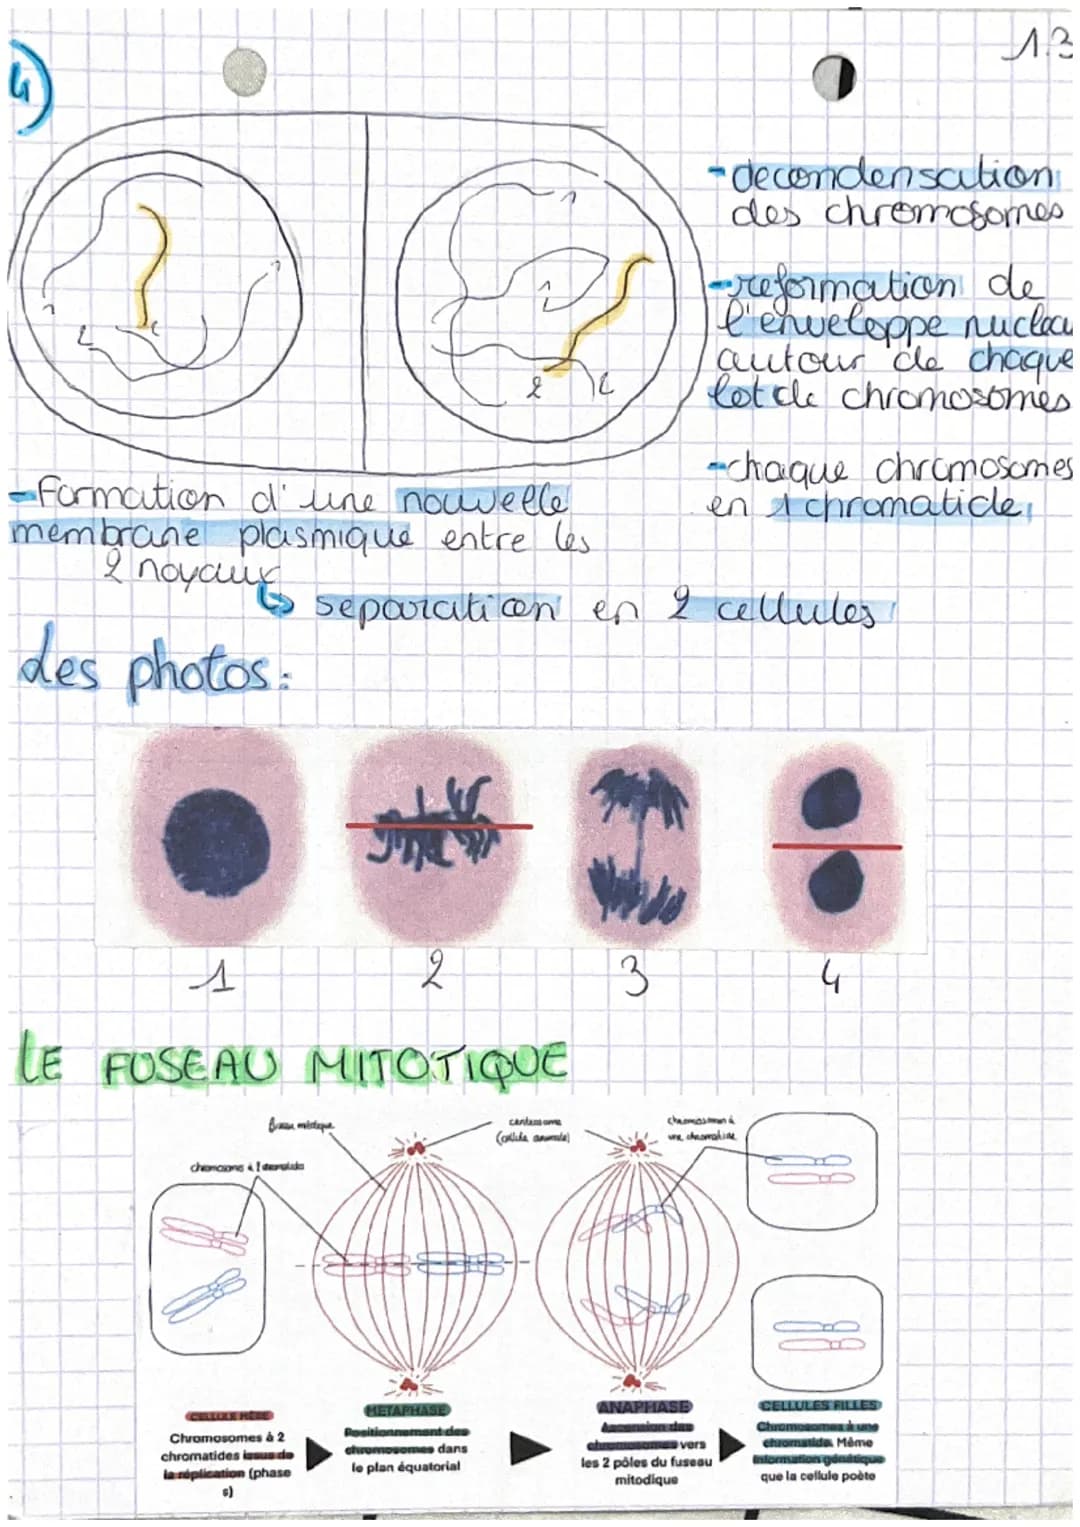 1.3
4)
1
2
2
1
1
1
2
2
- decondensation
des chromosomes
- reformation de
l'enveloppe nucléa
autour de chaque
lot de chromosomes
- chaque chromosomes
en 1 chromatide
- Formation d'une nouvelle
membrane plasmique entre les
2 noyaux
↳ separation en 2 cellules
des photos:
1 2 3 4
LE FUSEAU MITOTIQUE
fuseau mitotique
centrosome
(cellule animale)
chromosomes à
une chromatide
CELLULE MÈRE
Chromosomes à 2
chromatides issus de
la réplication (phase
s)
METAPHASE
Positionnement des
chromosomes dans
le plan équatorial
ANAPHASE
Ascension des
chromosomes vers
les 2 pôles du fuseau
mitodique
CELLULES FILLES
Chromosomes à une
chromatide. Même
information génétique
que la cellule poète